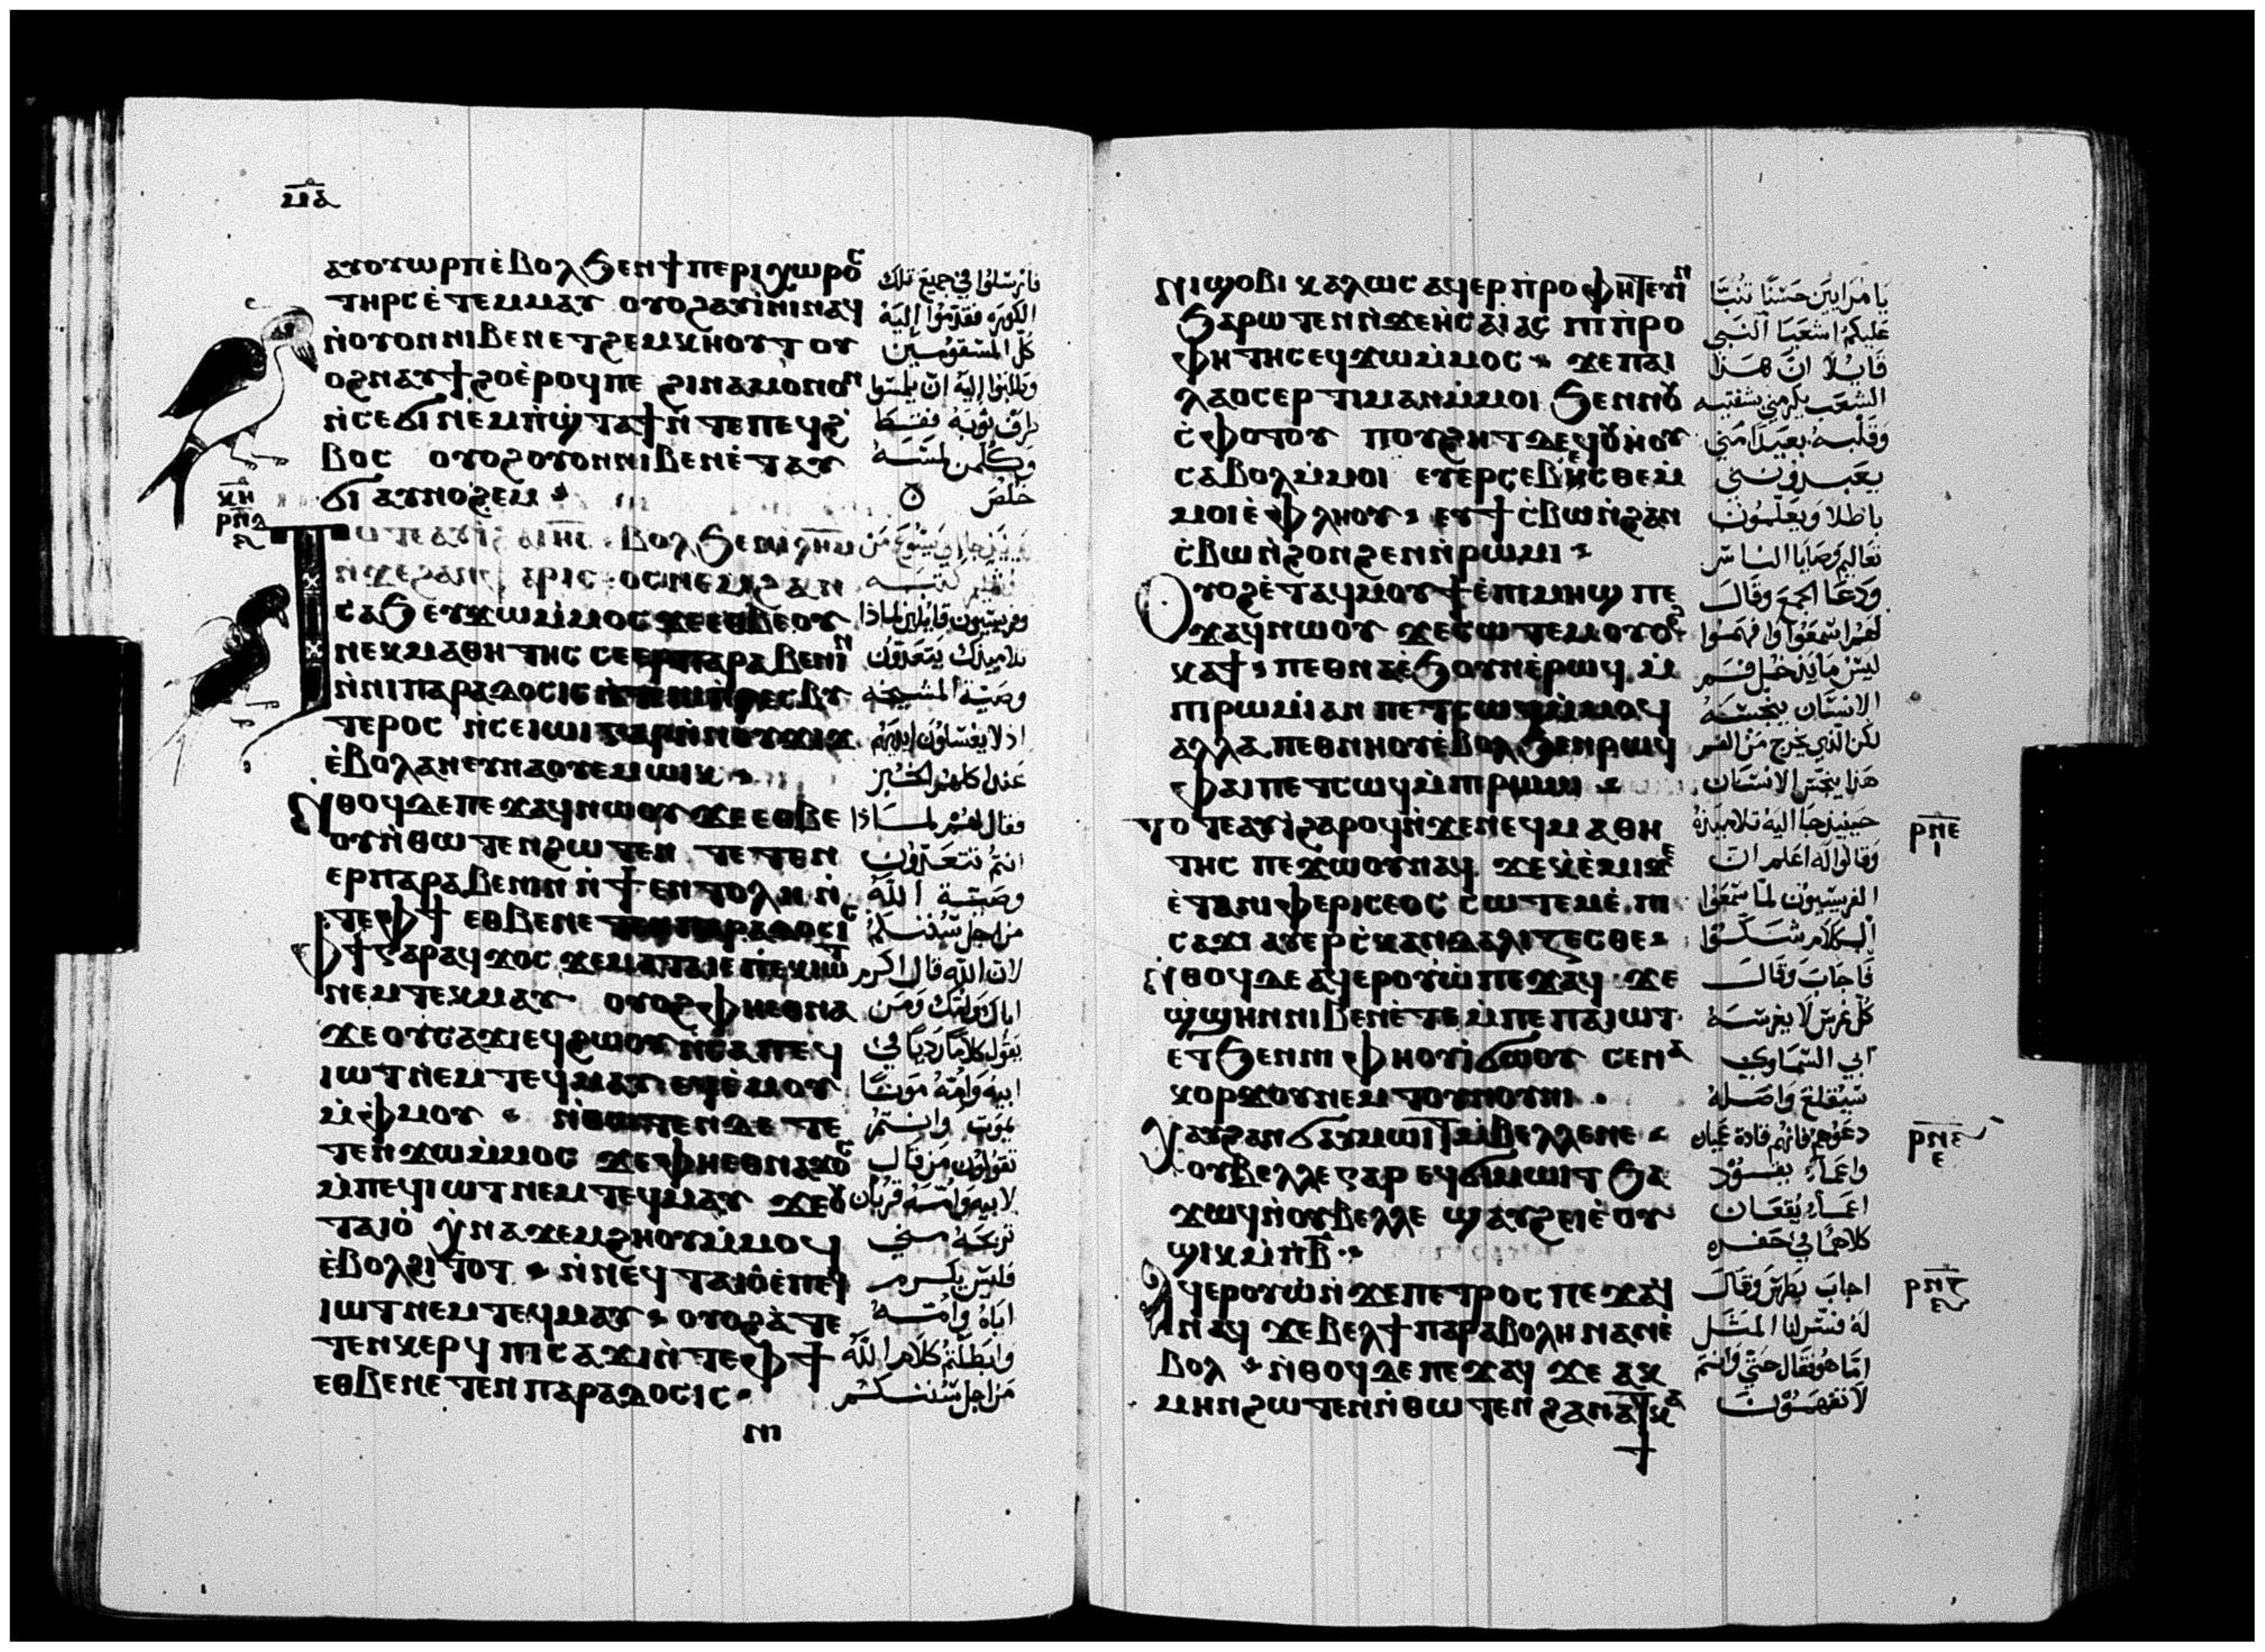 ⲙ̅ⲁ̅
ⲁⲩⲟⲩⲱⲣⲡ ⲉ̀ⲃⲟⲗ ϧⲉⲛ ϯⲡⲉⲣⲓⲭⲱⲣⲟⲥ
ⲧⲏⲣⲥ ⲉ̀ⲧⲉⲙⲙⲁⲩ ⲟⲩⲟϩ ⲁⲩⲓ̀ⲛⲓ ⲛⲁϥ
ⲛ̀ⲟⲩⲟⲛ ⲛⲓⲃⲉⲛ ⲉⲧϩⲉⲙⲕⲏⲟⲩⲧ ⲟⲩ
ⲟϩ ⲛⲁⲩϯϩⲟ ⲉ̀ⲣⲟϥ ⲡⲉ ϩⲓⲛⲁ ⲙⲟⲛⲟⲛ
ⲛ̀ⲥⲉϭⲓ ⲛⲉⲙ ⲡ̀ϣⲧⲁϯ ⲛ̀ⲧⲉ ⲡⲉϥϩ̀
ⲃⲟⲥ ⲟⲩⲟϩ ⲟⲩⲟⲛ ⲛⲓⲃⲉⲛ ⲉ̀ⲧⲁⲩ
ϭⲓ ⲁⲩⲛⲟϩⲉⲙ
ⲭⲏ
ⲣⲛⲇ
ⲥⲁϧ ⲉⲩϫⲱ ⲙ̀ⲙⲟⲥ ϫⲉ ⲉⲑⲃⲉ ⲟⲩ
ⲛⲉⲕⲙⲁⲑⲏⲧⲏⲥ ⲥⲉⲉⲣⲡⲁⲣⲁⲃⲉⲛⲓⲛ
ⲛ̀ⲛⲓⲡⲁⲣⲁⲇⲟⲥⲓⲥ ⲛ̀ⲧⲉ ⲛⲓⲡ̀ⲣⲉⲥⲃⲩ
ⲧⲉⲣⲟⲥ ⲛ̀ⲥⲉⲓⲱⲓ ⲅⲁⲣ ⲛ̀ⲛⲟⲩϫⲓϫ
ⲉ̀ⲃⲟⲗ ⲁⲛ ⲉⲩⲛⲁⲟⲩⲉⲙ ⲱⲓⲕ
ⲛ̀ⲑⲟϥ ⲇⲉ ⲡⲉϫⲁϥ ⲛⲱⲟⲩ ϫⲉ ⲉⲑⲃⲉ
ⲟⲩ ⲛ̀ⲑⲱⲧⲉⲛ ϩⲱⲧⲉⲛ ⲧⲉⲧⲉⲛ
ⲉⲣⲡⲁⲣⲁⲃⲉⲛⲓⲛ ⲛ̀ϯⲉⲛⲧⲟⲗⲏ ⲛ̀
ⲧⲉ ⲫϯ ⲉⲑⲃⲉ ⲛⲉⲧⲉⲛⲡⲁⲣⲁⲇⲟⲥⲓⲥ
ⲫϯ ⲅⲁⲣ ⲁϥϫⲟⲥ ϫⲉ ⲙⲁⲧⲁⲓⲉ ⲡⲉⲕⲓⲱⲧ
ⲛⲉⲙ ⲧⲉⲕⲙⲁⲩ ⲟⲩⲟϩ ⲫⲏ ⲉⲑⲛⲁ
ϫⲉ ⲟⲩⲥⲁϫⲓ ⲉϥϩⲱⲟⲩ ⲛ̀ⲥⲁ ⲡⲉϥ
ⲓⲱⲧ ⲛⲉⲙ ⲧⲉϥⲙⲁⲩ ⲉϥⲉ̀ⲙⲟⲩ
ⲙ̀ⲫⲙⲟⲩ ⲛ̀ⲑⲱⲧⲉⲛ ⲇⲉ ⲧⲉ
ⲧⲉⲛϫⲱ ⲙ̀ⲙⲟⲥ ϫⲉ ⲫⲏ ⲉⲑⲛⲁϫⲟⲥ
ⲙ̀ⲡⲉϥⲓⲱⲧ ⲛⲉⲙ ⲧⲉϥⲙⲁⲩ ϫⲉ ⲟⲩ
ⲧⲁⲓⲟ̀ ⲭ̀ⲛⲁϫⲉⲙϩⲏⲟⲩ ⲙ̀ⲙⲟϥ
ⲉ̀ⲃⲟⲗ ϩⲓⲧⲟⲧ ⲛ̀ⲛⲉϥⲧⲁⲓⲟ̀ ⲉ̀ⲡⲉϥ
ⲓⲱⲧ ⲛⲉⲙ ⲧⲉϥⲙⲁⲩ ⲟⲩⲟϩ ⲁ̀ⲧⲉ
ⲧⲉⲛⲕⲉⲣϥ ⲡⲓⲥⲁϫⲓ ⲛ̀ⲧⲉ ⲫϯ
ⲉⲑⲃⲉ ⲛⲉⲧⲉⲛⲡⲁⲣⲁⲇⲟⲥⲓⲥ
ⲛⲓ
فارسلوا في جميع تلك
الكوره فقدموا اليه
كل المسقومين
وطلبوا اليه ان يلمسوا
طرف ثوبه فقط
وكلمن لمسه
خلص
وفريسيون قايلين لماذا
تلاميذك يتعدون
وصية المشيخه
اذ لا يغسلون ايديهم
عند اكلهم الخبز
فقال لهم لماذا
انتم تتعدون
وصية الله
من اجل سننكم
لان الله قال اكرم
اباك وامك ومن
يقول كلاما رديا في
ابيه وامه موتا
يموت وانتم
تقولون من قال
لابيه وامه قربان
تربحه مني
فليس يكرم
اباه وامه
وابطلتم كلام الله
من اجل سننكم
ⲛⲓϣⲟⲃⲓ ⲕⲁⲗⲱⲥ ⲁϥⲉⲣⲡ̀ⲣⲟⲫⲏⲧⲉⲩⲓⲛ
ϧⲁⲣⲱⲧⲉⲛ ⲛ̀ϫⲉ ⲏ̀ⲥⲁⲓⲁⲥ ⲡⲓⲡ̀ⲣⲟ
ⲫⲏⲧⲏⲥ ⲉϥϫⲱ ⲙ̀ⲙⲟⲥ ϫⲉ ⲡⲁⲓ
ⲗⲁⲟⲥ ⲉⲣⲧⲓⲙⲁⲛ ⲙ̀ⲙⲟⲓ ϧⲉⲛ ⲛⲟⲩ
ⲥ̀ⲫⲟⲧⲟⲩ ⲡⲟⲩϩⲏⲧ ⲇⲉ ϥⲟⲩⲏ̀ⲟⲩ
ⲥⲁⲃⲟⲗ ⲙ̀ⲙⲟⲓ ⲉⲩⲉⲣⲥⲉⲃⲉⲥⲑⲉ ⲙ̀
ⲙⲟⲓ ⲉ̀ⲫⲗⲏⲟⲩ ⲉⲩϯⲥ̀ⲃⲱ ⲛ̀ϩⲁⲛ
ⲥ̀ⲃⲱ ⲛ̀ϩⲟⲛϩⲉⲛ ⲛ̀ⲣⲱⲙⲓ
ⲟⲩⲟϩ ⲉ̀ⲧⲁϥⲙⲟⲩϯ ⲉ̀ⲡⲓⲙⲏϣ ⲡⲉ
ϫⲁϥ ⲛⲱⲟⲩ ϫⲉ ⲥⲱⲧⲉⲙ ⲟⲩⲟϩ
ⲕⲁϯ ⲡⲉⲑⲛⲁ ⲉ̀ϧⲟⲩⲛ ⲉ̀ⲣⲱϥ ⲙ̀
ⲡⲓⲣⲱⲙⲓ ⲁⲛ ⲡⲉⲧⲥⲱϥ ⲙ̀ⲙⲟϥ
ⲁⲗⲗⲁ ⲡⲉⲑⲛⲏⲟⲩ ⲉ̀ⲃⲟⲗ ϧⲉⲛ ⲣⲱϥ
ⲫⲁⲓ ⲡⲉⲧⲥⲱϥ ⲙ̀ⲡⲓⲣⲱⲙⲓ
ⲧⲟⲧⲉ ⲁⲩⲓ̀ ϩⲁⲣⲟϥ ⲛ̀ϫⲉ ⲛⲉϥⲙⲁⲑⲏ
ⲧⲏⲥ ⲡⲉϫⲱⲟⲩ ⲛⲁϥ ϫⲉ ⲭ̀ⲉ̀ⲙⲓ ϫⲉ
ⲉ̀ⲧⲁ ⲛⲓⲫⲉⲣⲓⲥⲉⲟⲥ ⲥⲱⲧⲉⲙ ⲉ̀ⲡⲓ
ⲥⲁϫⲓ ⲁⲩⲉⲣⲥ̀ⲕⲁⲛⲇⲁⲗⲓⲍⲉⲥⲑⲉ
ⲛ̀ⲑⲟϥ ⲇⲉ ⲁϥⲉⲣⲟⲩⲱ̀ ⲡⲉϫⲁϥ ϫⲉ
ϣ̀ϣⲏⲛ ⲛⲓⲃⲉⲛ ⲉ̀ⲧⲉ ⲙ̀ⲡⲉ ⲡⲁⲓⲱⲧ
ⲉⲧϧⲉⲛ ⲛⲓⲫⲏⲟⲩⲓ̀ ϭⲱⲟⲩ ⲥⲉⲛⲁ
ⲕⲟⲣϫⲟⲩ ⲛⲉⲙ ⲧⲟⲩⲛⲟⲩⲛⲓ
ⲭⲁⲩ ϩⲁⲛϭⲁⲩⲙⲱⲓⲧ ⲙ̀ⲃⲉⲗⲗⲉ ⲛⲉ
ⲟⲩⲃⲉⲗⲗⲉ ⲅⲁⲣ ⲉϥϭⲓⲙⲱⲓⲧ ϧⲁ
ϫⲱϥ ⲛ̀ⲟⲩⲃⲉⲗⲗⲉ ϣⲁⲩϩⲉⲓ ⲉ̀ⲟⲩ
ϣⲓⲕ ⲙ̀ⲡⲃ̅
ⲁϥⲉⲣⲟⲩⲱ̀ ⲛ̀ϫⲉ ⲡⲉⲧⲣⲟⲥ ⲡⲉϫⲁϥ
ⲛⲁϥ ϫⲉ ⲃⲉⲗ ϯⲡⲁⲣⲁⲃⲟⲗⲏ ⲛⲁⲛ ⲉ̀
ⲃⲟⲗ ⲛ̀ⲑⲟϥ ⲇⲉ ⲡⲉϫⲁϥ ϫⲉ ⲁⲕ
ⲙⲏⲛ ϩⲱⲧⲉⲛ ⲛ̀ⲑⲱⲧⲉⲛ ϩⲁⲛⲁⲧⲕⲁ
ϯ
يا مرايين حسنا تنبا
عليكم اشعيا النبي
قايلا ان هذا
الشعب يكرمني بشفتيه
وقلبه بعيدا مني
يعبدونني
باطلا ويعلمون
تعاليم وصايا الناس
ودعا الجمع وقال
لهم اسمعوا وافهموا
ليس ما يدخل فم
الانسان ينجسه
لكن الذي يخرج من الفم
هذا ينجس الانسان
حينيذ جا اليه تلاميذه
وقالوا له اعلم ان
الفريسيون لما سمعوا
الكلام شكوا
فاجاب وقال
كل غرس لا يغرسه
ابي السماوي
سيقلع واصله
دعوهم فانهم قادة عميان
واعما يقود
اعما يقعان
كلاهما في حفره
اجاب بطرس وقال
له فسر لنا المثل
اما هو فقال حتي وانتم
لا تفهمون
ⲣⲛⲉ
ⲓ
ⲣⲛⲋ
ⲉ
ⲣⲛⲍ